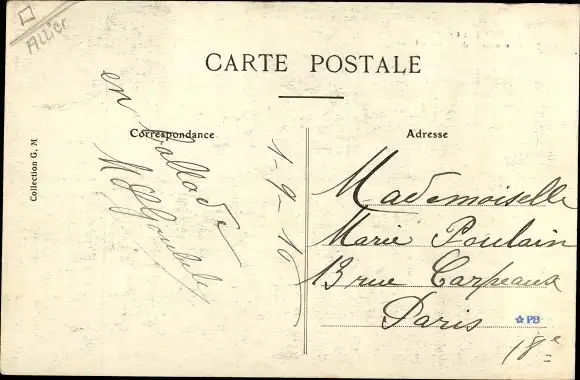 Allier
CARTE POSTALE
Correspondance
Adresse
Collection G, M
en ballade
1-9-10
Mademoiselle
Marie Poulain
13 rue Carpeaux
Paris
18e
PB